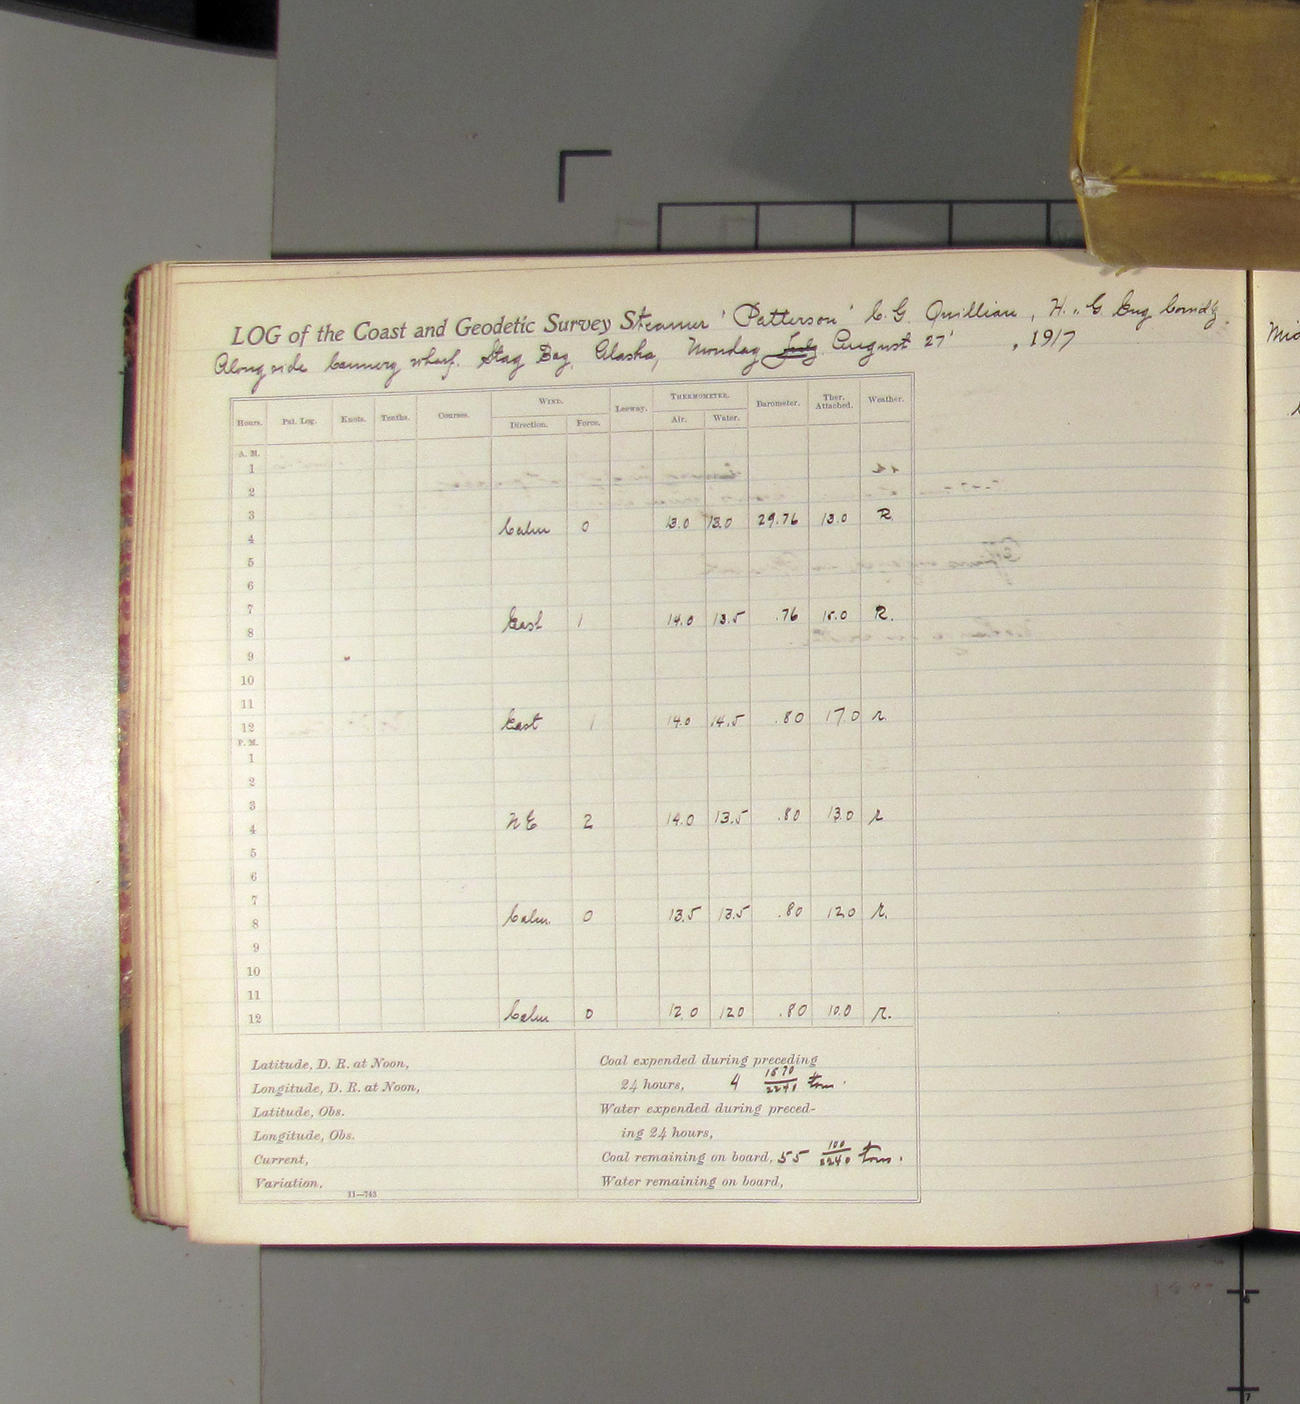 LOG of the Coast and Geodetic Survey Steamer 'Patterson' C. G. Quillian, H. & G. Eng Comd'g.
Alongside Cannery wharf. Stag Bay, Alaska, Monday July August 27', 1917
Hours. Pat. Log. Knots. Tenths. Courses. WIND. Direction. Force. Leeway. THERMOMETER. Air. Water. Barometer. Ther. Attached. Weather.
A. M.
1
2
3
4 Calm 0 13.0 13.0 29.76 13.0 R.
5
6
7
8 East 1 14.0 13.5 .76 15.0 R.
9
10
11
12 East 1 14.0 14.5 .80 17.0 r.
P. M.
1
2
3
4 NE 2 14.0 13.5 .80 13.0 r
5
6
7
8 Calm. 0 13.5 13.5 .80 12.0 r.
9
10
11
12 Calm 0 12.0 12.0 .80 10.0 r.
Latitude, D. R. at Noon,
Longitude, D. R. at Noon,
Latitude, Obs.
Longitude, Obs.
Current,
Variation.
11—743
Coal expended during preceding
24 hours, 4 1570/2240 tons.
Water expended during preced-
ing 24 hours,
Coal remaining on board, 55 100/2240 tons.
Water remaining on board,
Mid
6
7